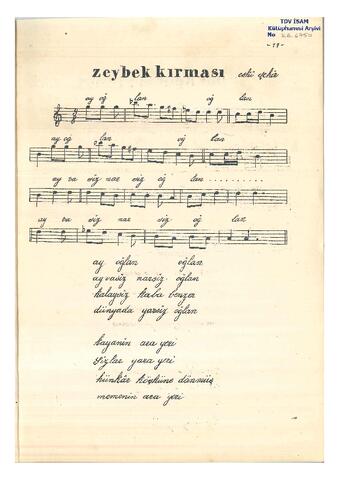 TDV İSAM
Kütüphanesi Arşivi
No
-19-
zeybek kırması eski şehir
ay oğ lan oğ lan
ay oğ lan oğ lan
ay va sız nar sız oğ lan
ay va sız nar sız oğ lan
ay oğlan oğlan
ayvasız narsız oğlan
kalaysız kaba benzer
dünyada yarsız oğlan
kayanin ara yeri
sizlar yara yeri
hünkâr köşküne dönmüş
memenin ara yeri